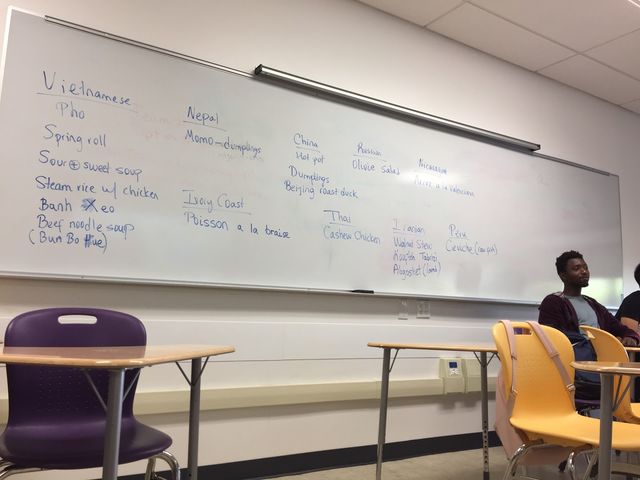 Vietnamese
Pho
Spring roll
Sour + sweet soup
Steam rice w/ chicken
Banh Xeo
Beef noodle soup
(Bun Bo Hue)
Nepal
Momo - dumplings
Ivory Coast
Poisson a la braise
China
Hot pot
Dumplings
Beijing roast duck
Thai
Cashew Chicken
Russian
Olivie salad
Iranian
Walnut Stew
Tabrizi
(lamb)
Nicaragua
a la Valenciana
Peru
Ceviche (raw fish)